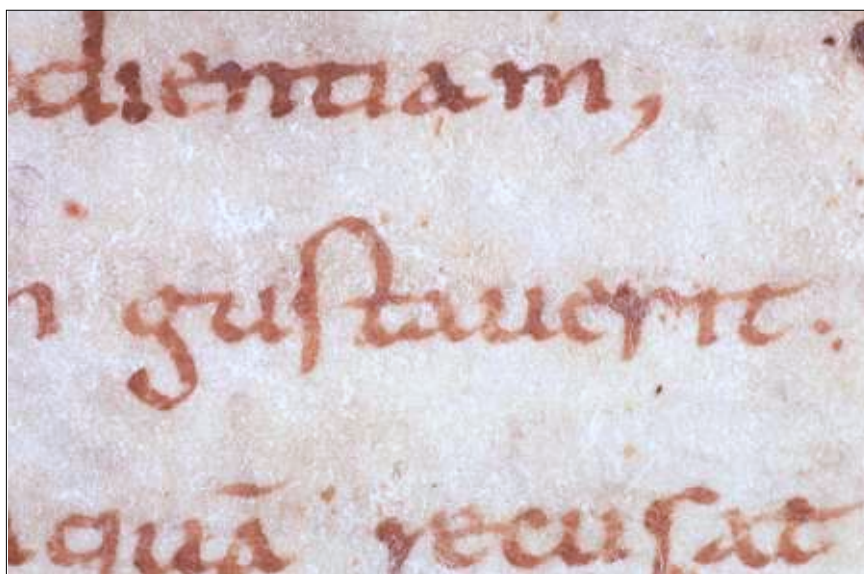 dientiam,
gustauerit.
quā recusat